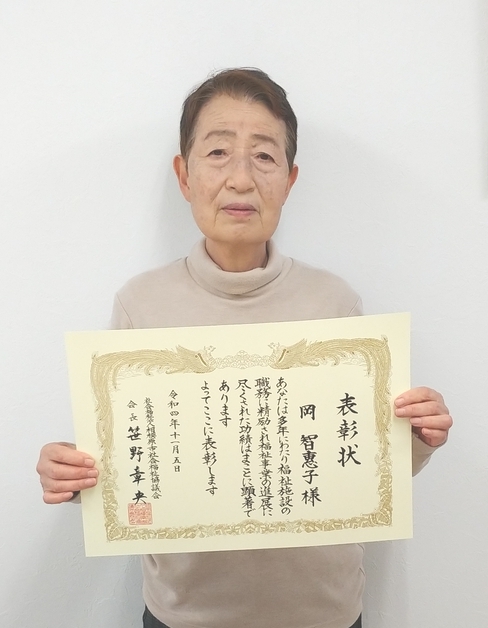 表彰状
岡 智惠子 様
あなたは多年にわたり福祉施設の
職務に精励され福祉事業の進展に
尽くされた功績はまことに顕著で
あります
よってここに表彰します
令和四年十一月五日
社会福祉法人相模原市社会福祉協議会
会長 笹野章央